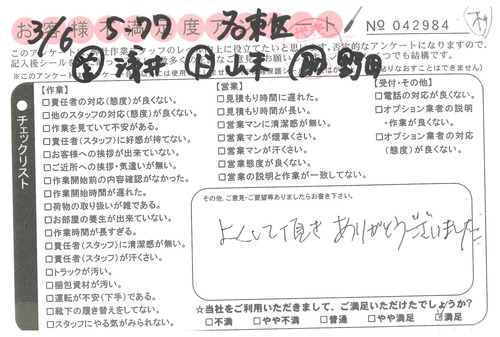 お客様満足度アンケート
3/26 5-77 名東区
№ 042984
浅井 山本 野田
チェックリスト
【作業】
□責任者の対応(態度)が良くない。
□他のスタッフの対応(態度)が良くない。
□作業を見ていて不安がある。
□責任者(スタッフ)に好感が持てない。
□お客様への挨拶が出来ていない。
□ご近所への挨拶・気遣いが無い。
□作業開始前の内容確認がなかった。
□作業開始時間が遅れた。
□荷物の取り扱いが雑である。
□お部屋の養生が出来ていない。
□作業時間が長すぎる。
□責任者(スタッフ)に清潔感が無い。
□責任者(スタッフ)が汗くさい。
□トラックが汚い。
□梱包資材が汚い。
□運転が不安(下手)である。
□靴下の履き替えをしてない。
□スタッフにやる気がみられない。
【営業】
□見積もり時間に遅れた。
□見積もり時間が長い。
□営業マンに清潔感が無い。
□営業マンが煙草くさい。
□営業マンが汗くさい。
□営業態度が良くない。
□営業の説明と作業が一致してない。
【受付・その他】
□電話の対応が良くない。
□オプション業者の説明
・作業が良くない。
□オプション業者の対応
(態度)が良くない。
その他、ご意見・ご要望等ありましたらお書き下さい。
よくして頂き ありがとうございました
☆当社をご利用いただきまして、ご満足いただけたでしょうか?
□不満 □やや不満 □普通 □やや満足 ☑満足